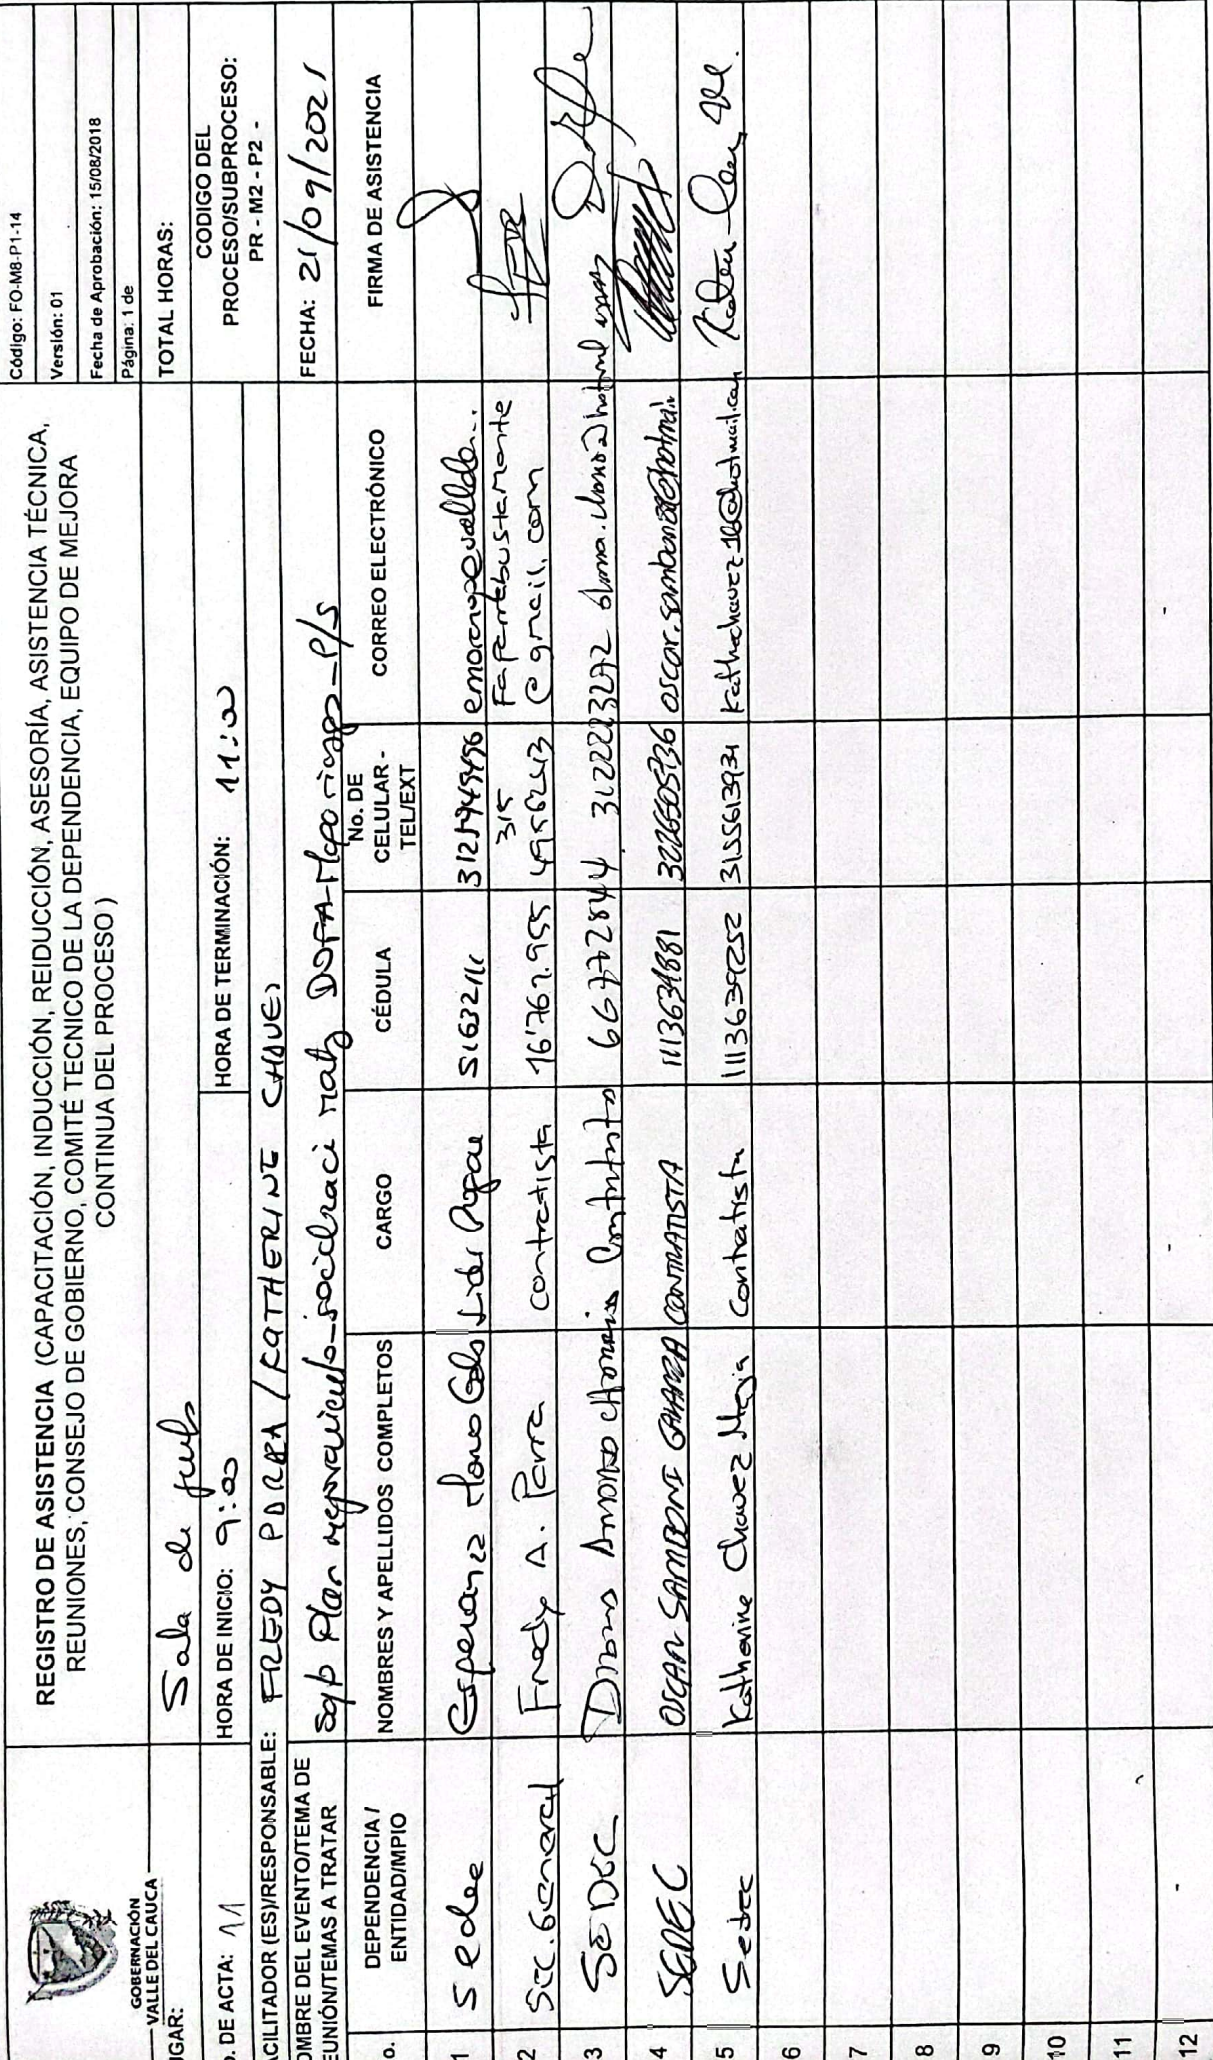 GOBERNACIÓN
VALLE DEL CAUCA
REGISTRO DE ASISTENCIA (CAPACITACIÓN, INDUCCIÓN, REIDUCCIÓN, ASESORÍA, ASISTENCIA TÉCNICA,
REUNIONES, CONSEJO DE GOBIERNO, COMITÉ TECNICO DE LA DEPENDENCIA, EQUIPO DE MEJORA
CONTINUA DEL PROCESO )
Código: FO-M8-P1-14
Versión: 01
Fecha de Aprobación: 15/08/2018
Página: 1 de
UGAR: Sala de
TOTAL HORAS:
. DE ACTA: 11 HORA DE INICIO: 9:00 HORA DE TERMINACIÓN: 11:00
CODIGO DEL
PROCESO/SUBPROCESO:
PR - M2 - P2 -
ACILITADOR (ES)/RESPONSABLE: FREDY PARRA / KATHERINE CHAVEZ
OMBRE DEL EVENTO/TEMA DE
EUNIÓN/TEMAS A TRATAR Plan DOFA-Mapa riesgo-P/S
FECHA: 21/09/2021
o. DEPENDENCIA / ENTIDAD/MPIO NOMBRES Y APELLIDOS COMPLETOS CARGO CÉDULA No. DE CELULAR - TEL/EXT CORREO ELECTRÓNICO FIRMA DE ASISTENCIA
1 Sedec Esperanza Lider
2 Sec. General Fredy A. Parra contratista 16'767.955 315 4956243 Faparrabustamante
@gmail.com
3 SEDEC Contratista 66772844 3122223272
4 SEDEC OSCAR SAMBONI CONTRATISTA 1113634881
5 Sedec Katherine Chavez Mejia Contratista 1113639252 3155613931 Kathechavez16@hotmail.com
6
7
8
9
10
11
12